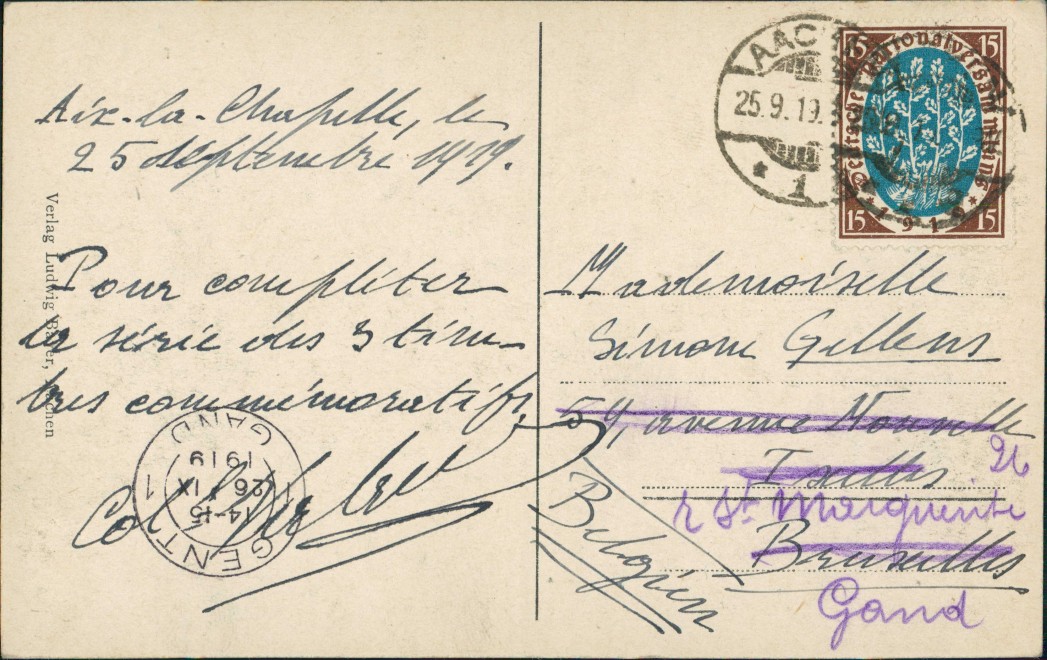 Aix-la-Chapelle, le
25 septembre 1919.
Pour compléter
la série des 3 tim-
bres commémoratifs,
Verlag Ludwig
GENT 1 GAND
14-15
26 IX
1919
AACHEN
25.9.19.
* 1
15 15
Deutsche Nationalversammlung
* 1919 *
15 15
Mademoiselle
Simone Gellens
59, avenue Nouvelle
Ixelles
26
r Ste Marguerite
Bruxelles
Gand
Belgien